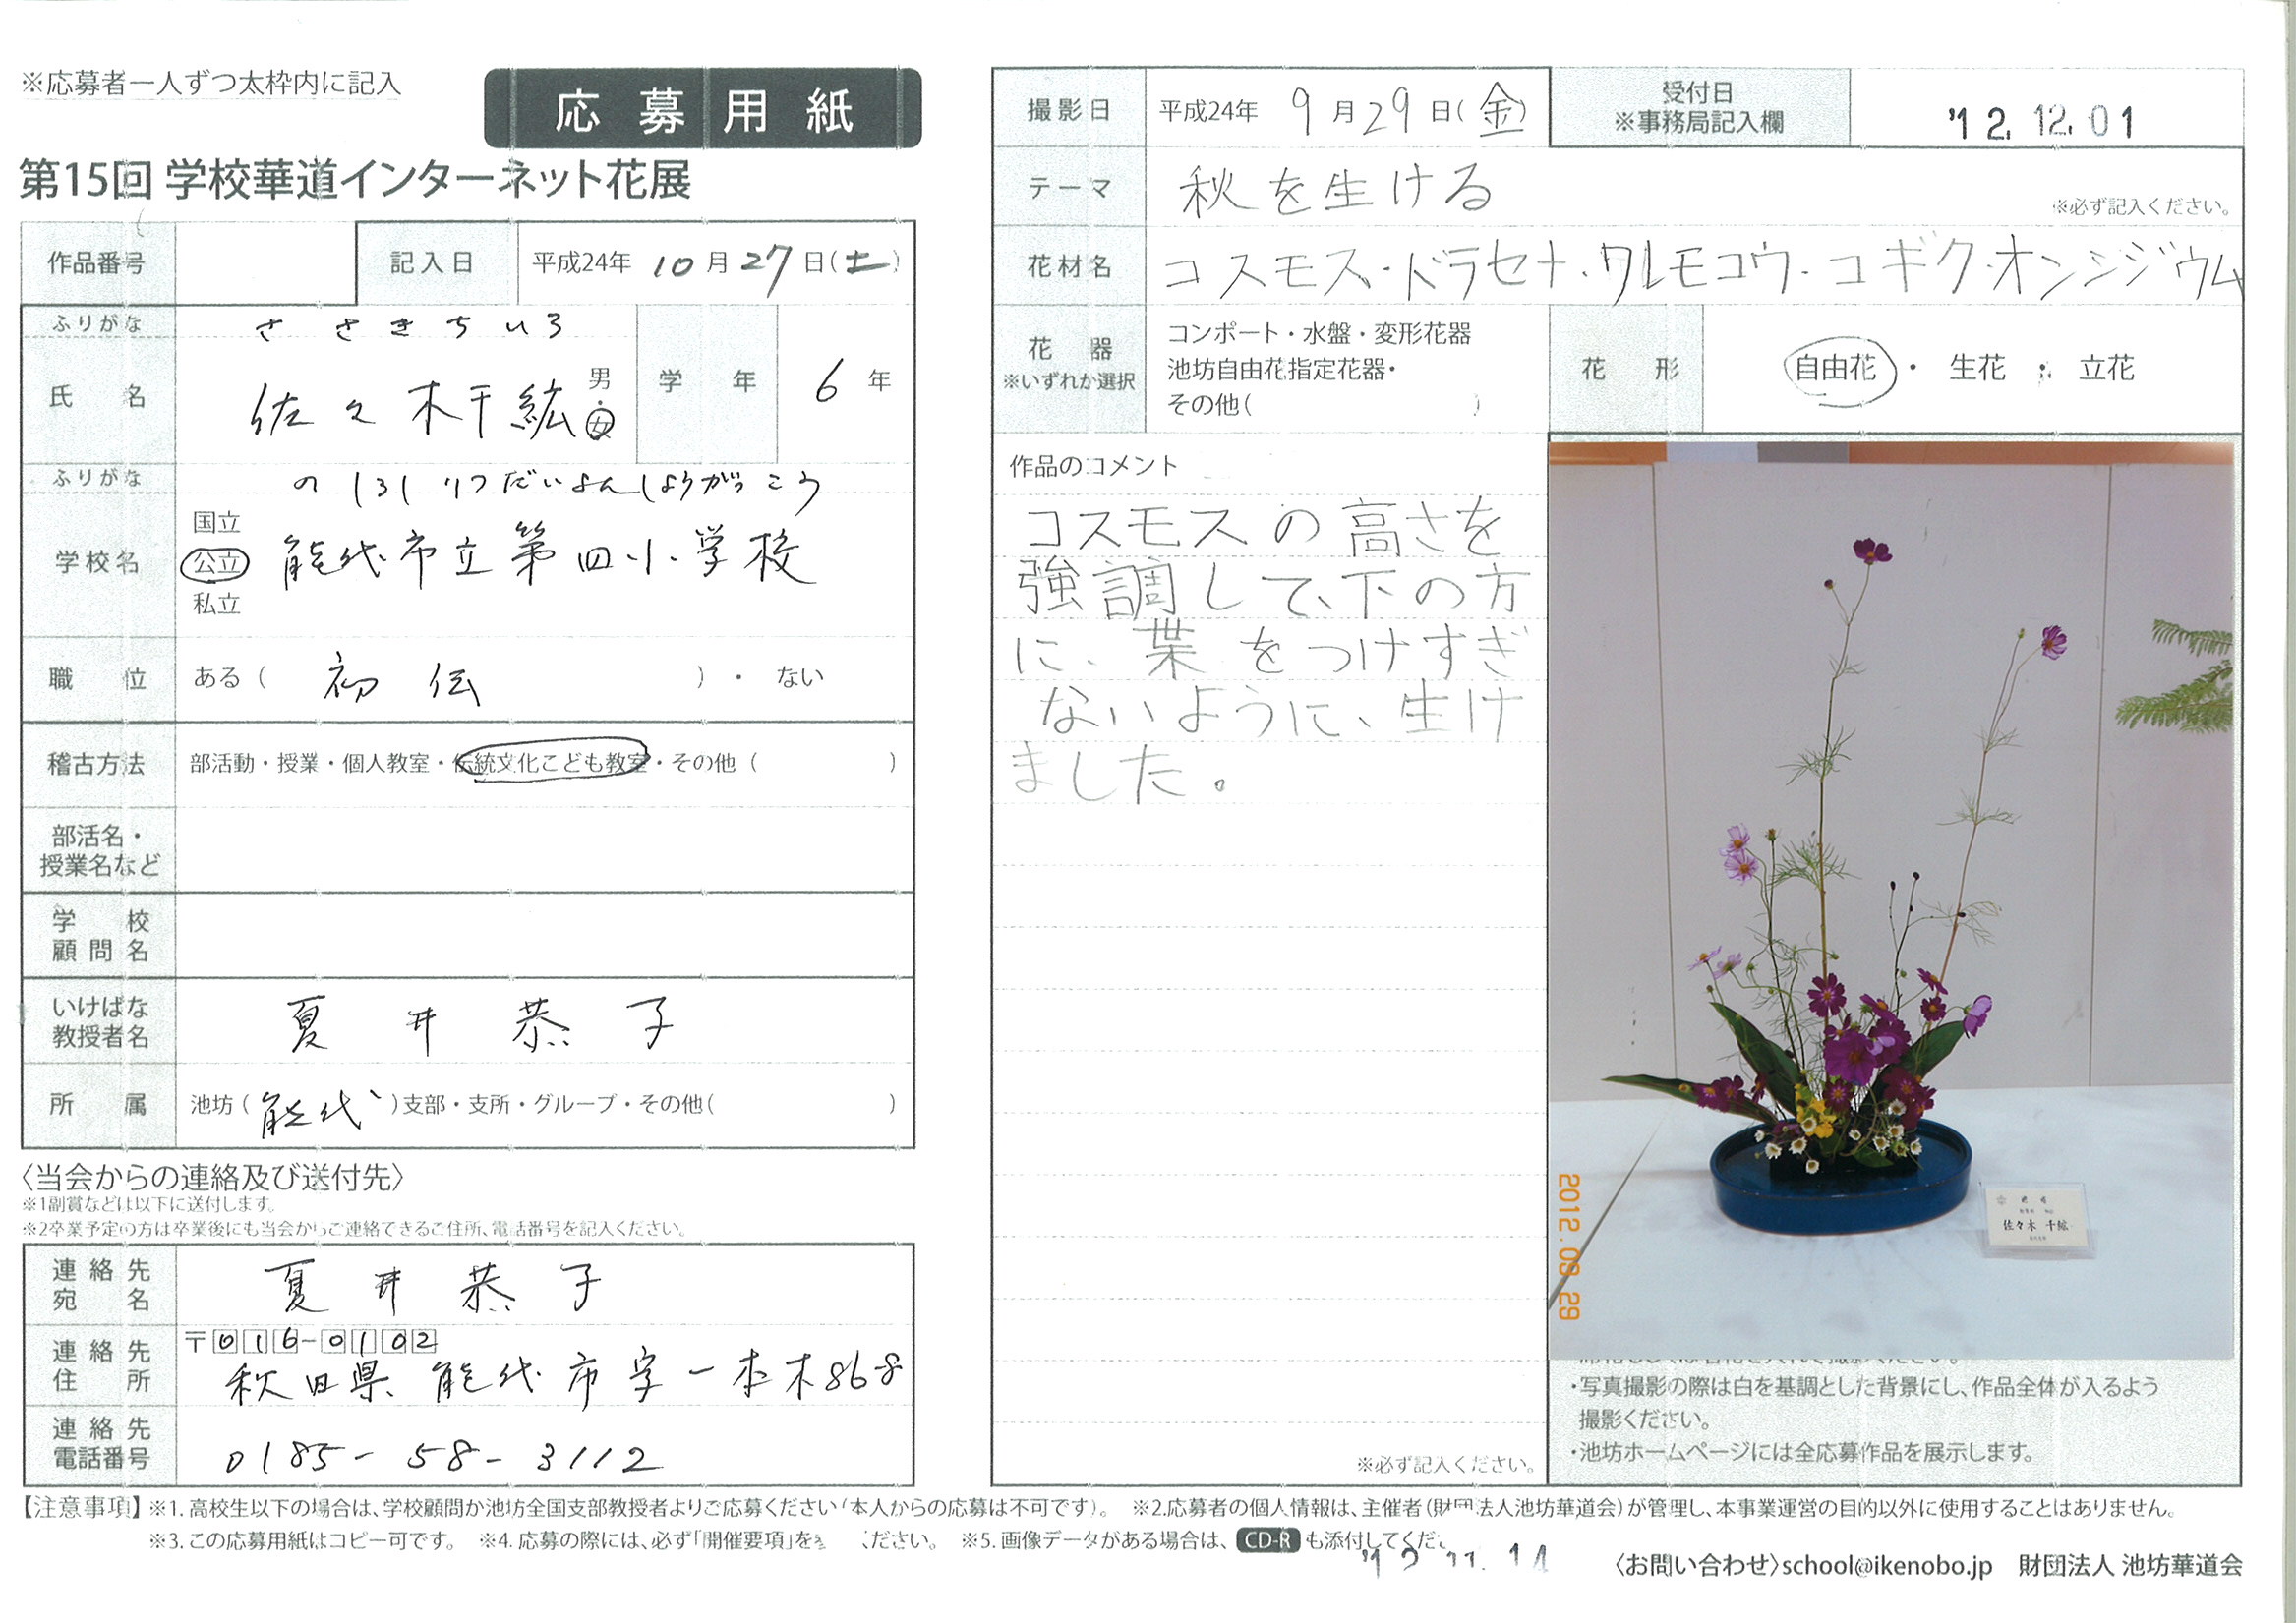 ※応募者一人ずつ太枠内に記入
応募用紙
第15回 学校華道インターネット花展
作品番号
記入日 平成24年 10月27日(土)
ふりがな ささきちひろ
氏名 佐々木千紘 男・女
学年 6年
ふりがな のしろしりつだいよんしょうがっこう
学校名 国立
公立 能代市立第四小学校
私立
職位 ある( 初伝 )・ ない
稽古方法 部活動・授業・個人教室・伝統文化こども教室・その他( )
部活名・
授業名など
学校
顧問名
いけばな
教授者名 夏井恭子
所属 池坊(能代)支部・支所・グループ・その他( )
〈当会からの連絡及び送付先〉
※1副賞などは以下に送付します。
※2卒業予定の方は卒業後にも当会からご連絡できるご住所、電話番号を記入ください。
連絡先
宛名 夏井恭子
連絡先
住所 〒016-0102
秋田県能代市字一本木868
連絡先
電話番号 0185-58-3112
撮影日 平成24年 9月29日(金)
受付日
※事務局記入欄 '12.12.01
テーマ 秋を生ける
※必ず記入ください。
花材名 コスモス・ドラセナ・ワレモコウ・コギク・オンシジウム
花器
※いずれか選択
コンポート・水盤・変形花器
池坊自由花指定花器・
その他( )
花形 自由花・生花・立花
作品のコメント
コスモスの高さを
強調して、下の方
に、葉をつけすぎ
ないように、生け
ました。
※必ず記入ください。
佐々木 千紘
2012.09.29
・写真撮影の際は白を基調とした背景にし、作品全体が入るよう
撮影ください。
・池坊ホームページには全応募作品を展示します。
【注意事項】※1. 高校生以下の場合は、学校顧問か池坊全国支部教授者よりご応募ください(本人からの応募は不可です)。 ※2.応募者の個人情報は、主催者(財団法人池坊華道会)が管理し、本事業運営の目的以外に使用することはありません。
※3. この応募用紙はコピー可です。 ※4. 応募の際には、必ず「開催要項」を ください。 ※5. 画像データがある場合は、CD-Rも添付してくだ
'12.11.14
〈お問い合わせ〉school@ikenobo.jp 財団法人 池坊華道会